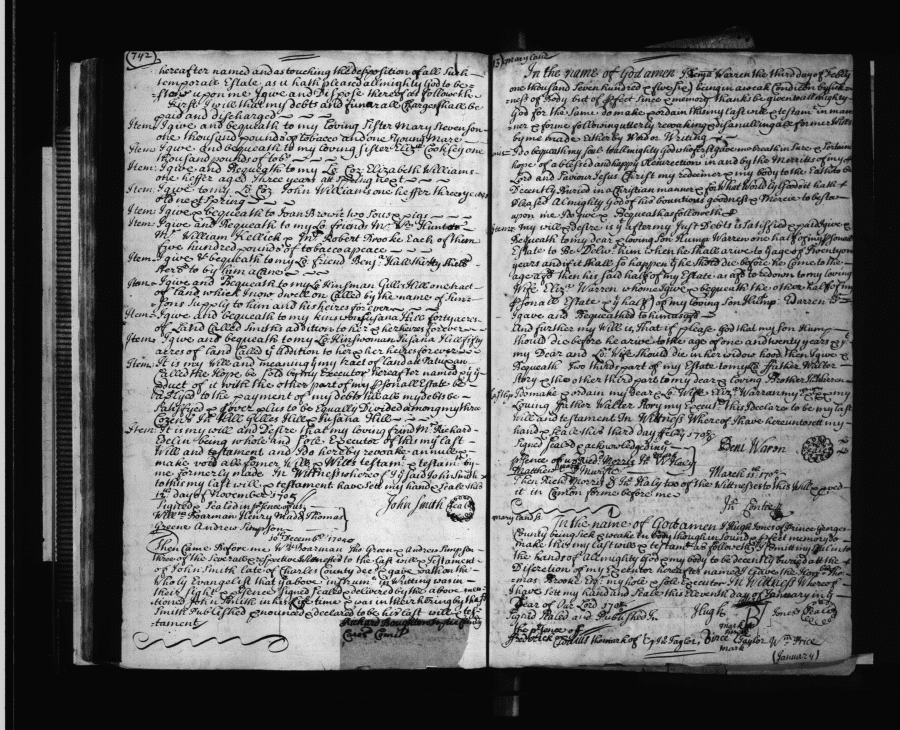 742
hereafter named and as touching the disposition of all such
temporal Estate as it hath pleased allmighty God to be-
stow upon me I give and Dispose thereof as followeth
First I will that my debts and funerall Charges shall be
paid and discharged
Item I give and bequeath to my loving Sister Mary Stevenson
one thousand pounds of tobacco and one young Mare
Item I give and bequeath to my loving sister Eliz. Cooksey one
thousand pounds of tob
Item I give and Bequeath to my Lo Coz Elizabeth Williams
one heffer aged Three years att Spring next
Item I give to my Lo Coz John Williams one heffer three years
old next Spring
Item I give & bequeath to Joan Brown two Sows & pigs
Item I give and Bequeath to my Lo friends Mr Wm Hunter
Mr William Hellick & Mr Robert Brooke Each of them
five hundred pounds of tobacco apeace
Item I give & bequeath to my Lo friend Benj. Hall thirty shill
sters to by him a
Item I give and Bequeath to my Lo Kinsman Giles Hill one tract
of land which I now dwell on Called by the name of Sim
sons Supply to him and his heires forever
Item I give and bequeath to my kinswoman Susana Hill forty acres
of Land Called Smiths addition to her & her heires forever
Item I give and bequeath to my Lo Kinswoman Susana Hill fifty
acres of land called ye addition to her & her heires forever
Item It is my Will and meaning yt my tract of land at Patuxan
Called the Hope be sold by my Executor hereafter named & ye
pduct of it with the other part of my psonall Estate be
applyed to the payment of my debts & all my debts be
Satisfyed & ye over plus to be Equally Divided among my three
Cozens Hill Giles Hill & Susana Hill
Item It is my Will and Desire that my loving frind Mr Richard
Edelin being whole and Sole Executor of this my last
Will and testament and I do hereby revoake annull &
make void all former Will & Wills testamt & testamts by
me formerly made In Witness whereof I ye said John Smith
to this my last will & testament have sett my hand & Seale this
day of November 1705
Signed & Sealed in presence of us John Smith Seal
Will Boarman Henry Thomas
Greene Andrew Simpson
10 Decemb 1704
Then Came Before me Wm Boarman Tho Green & Andrew Simpson
three of the Severall respective Witnesses to the Last will & Testament
of John Smith late of Charles County decd & gave oath on the
Wholy Evangelist that ye above instrumt in Writting was in
their sight & presence Signed Sealed & delivered by the above men
tioned John Smith in his life time & was in their hering by the sd
Smith Published & declared to be his last will & tes-
tament Richard Boughton
Maryland
In the name of God amen I Benja Warren the third day of Febry
one thousand Seven hundred & being in a weak Condition by sick
ness of Body but of pfect Sence & memory thanks be given to allmighty
God for the Same do make & ordain this my last will & testamt in man
ner & forme following utterly revoaking & disanulling all former Wills
by me made Either by Word or Writing
I do bequeath my Soul to allmighty God who first gave me breath in Sure & Certain
hope of a blessed and happy Resurrection in and by the Merritts of my
Lord and Saviour Jesus Christ my redeemer & my body to the Earth to be
Decently Buried in a Christian manner & for What Worldly Good it hath
pleased Almighty God of his bountious goodness & Mercie to bestow
upon me I do give & Bequeath as followeth
My will & desire is yt after my Just Debts is Satisfied & paid I give &
Bequeath to my dear & loving Son Hump Warren one half of my psonall
Estate to Be Delivd him when he shall arive to ye age of twenty one
years and if it shall so happen yt he should die before he Come to the
age afd then his said half of my Estate as afd to redown to my loving
Wife Eliza Warren whome I give & bequeath the other half of my
psonall Estate & ye half of my loving Son Hump Warren
I gave and Bequeathed to him as afd
And further my Will is, That if it please God that my son Hump
should die before he arive to the age of one and twenty years & if
my Dear and Lo: Wife should die in her widow hood then I give &
Bequeath Two thirds part of my Estate to my Lo father Walter
Story & the other third part to my dear & loving Brother Warren
I do make & ordain my Dear & Lo: Wife Eliza Warren my & my
Loving father Walter Story my Execut This I Declare to be my last
Will and testament In Witness Whereof I have hereunto sett my
hand & seale this third Day of Febry 1705
Signed Seald & acknowledged in ye Benj Warren
psence of us Rich Morris
Matthew March 1705
Then Rich Morris & two of the Witnesses to this Will proved
it in Comon forme before me
Jn Contee
Maryland ss
In the name of God amen I Hugh Jones of Prince Georges
County being Sick & weake in body though in sound & pfect memory do
make this my last will & testamt as followeth I Comitt my Soul into
the hands of allmighty God & my body to be decently buried att the
Discretion of my Executor hereafter named I leave the Honble Tho
mas Brooke Esq my hole & sole Executor In Witness Whereof
I have sett my hand and Seale this Eleventh day of January in ye
year of Our Lord 1705
Signed Sealed and Published In Hugh Jones Seale
the presence of marke
Frederick the mark of Tho Taylor, Wm Price
mark (January)